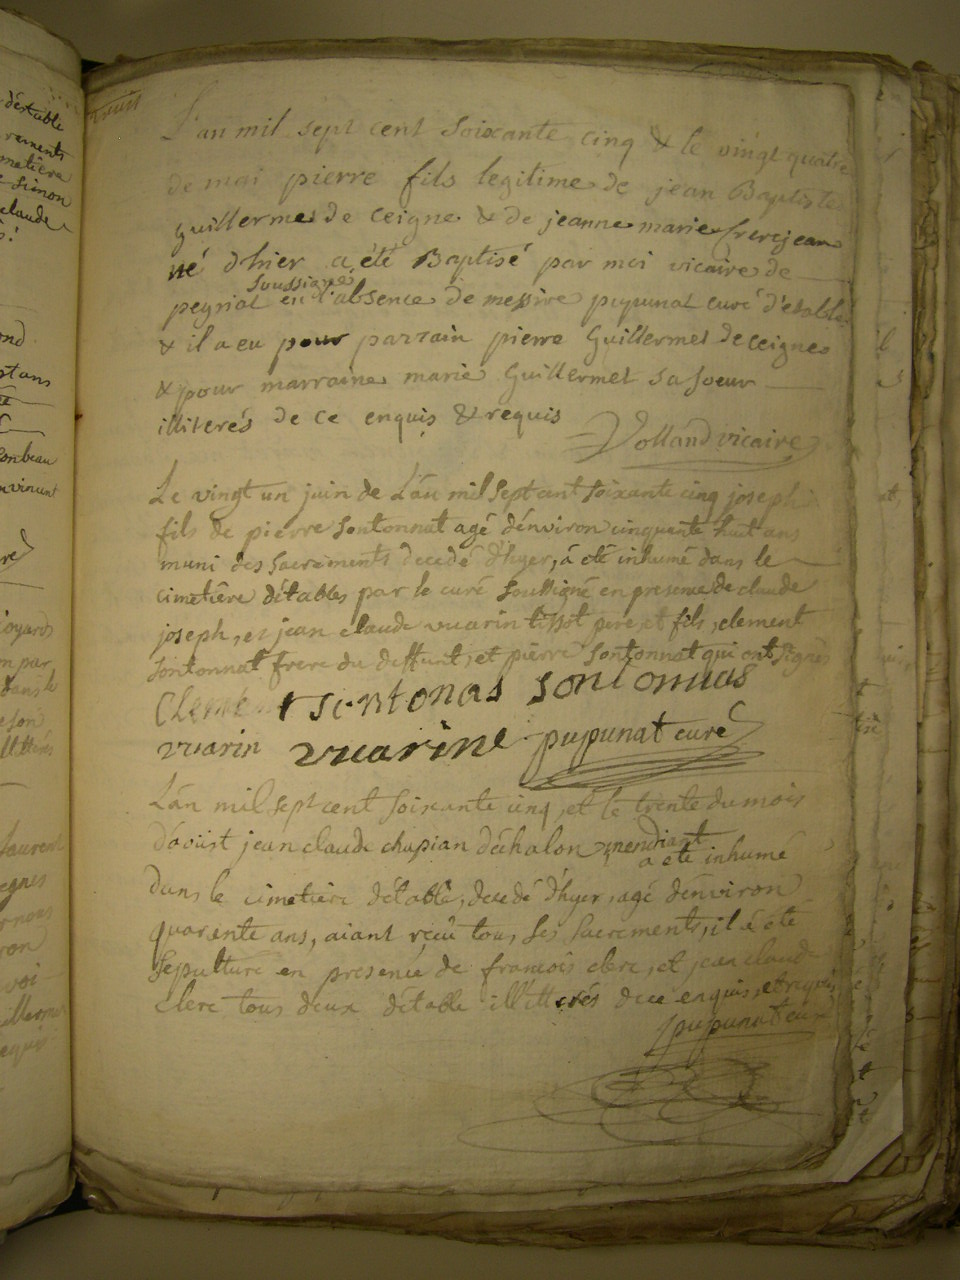 L'an mil sept cent soixante cinq & le vingt quatre
de mai pierre fils legitime de jean Baptiste
guillermet de Ceigne & de jeanne marie frerejean
né d'hier a été Baptisé par moi vicaire de
soussigné
peyriat en l'absence de messire pupunat curé d'etable
& il a eu pour parrain pierre Guillermet de Ceigne
& pour marraine marie Guillermet sa soeur
illiterés de ce enquis & requis
Volland vicaire
Le vingt un juin de L'an mil sept cent soixante cinq joseph
fils de pierre sontonnat agé d'environ cinquante huit ans
muni des sacrements decedé d'hyer, a eté inhumé dans le
cimetiere d'étables par le curé soussigné en presence de claude
joseph, et jean claude vuarin tissot pere et fils, clement
sontonnat frere du deffunt, et pierre sontonnat qui ont signes
Clement sontonas
vuarin vuarine pupunat curé
L'an mil sept cent soixante cinq, et le trente du mois
d'aoust jean claude chapian d'échalon mendiant
a eté inhumé
Dans le cimetiere d'étable, decedé d'hyer, agé d'environ
quarente ans, aiant reçu tous ses sacrements, il a eté
sepulturé en presence de francois clerc, et jean claude
clerc tous deux d'étable illitterés de ce enquis, et requis
pupunat curé
d'estable
rements
metiere
Simon
claude